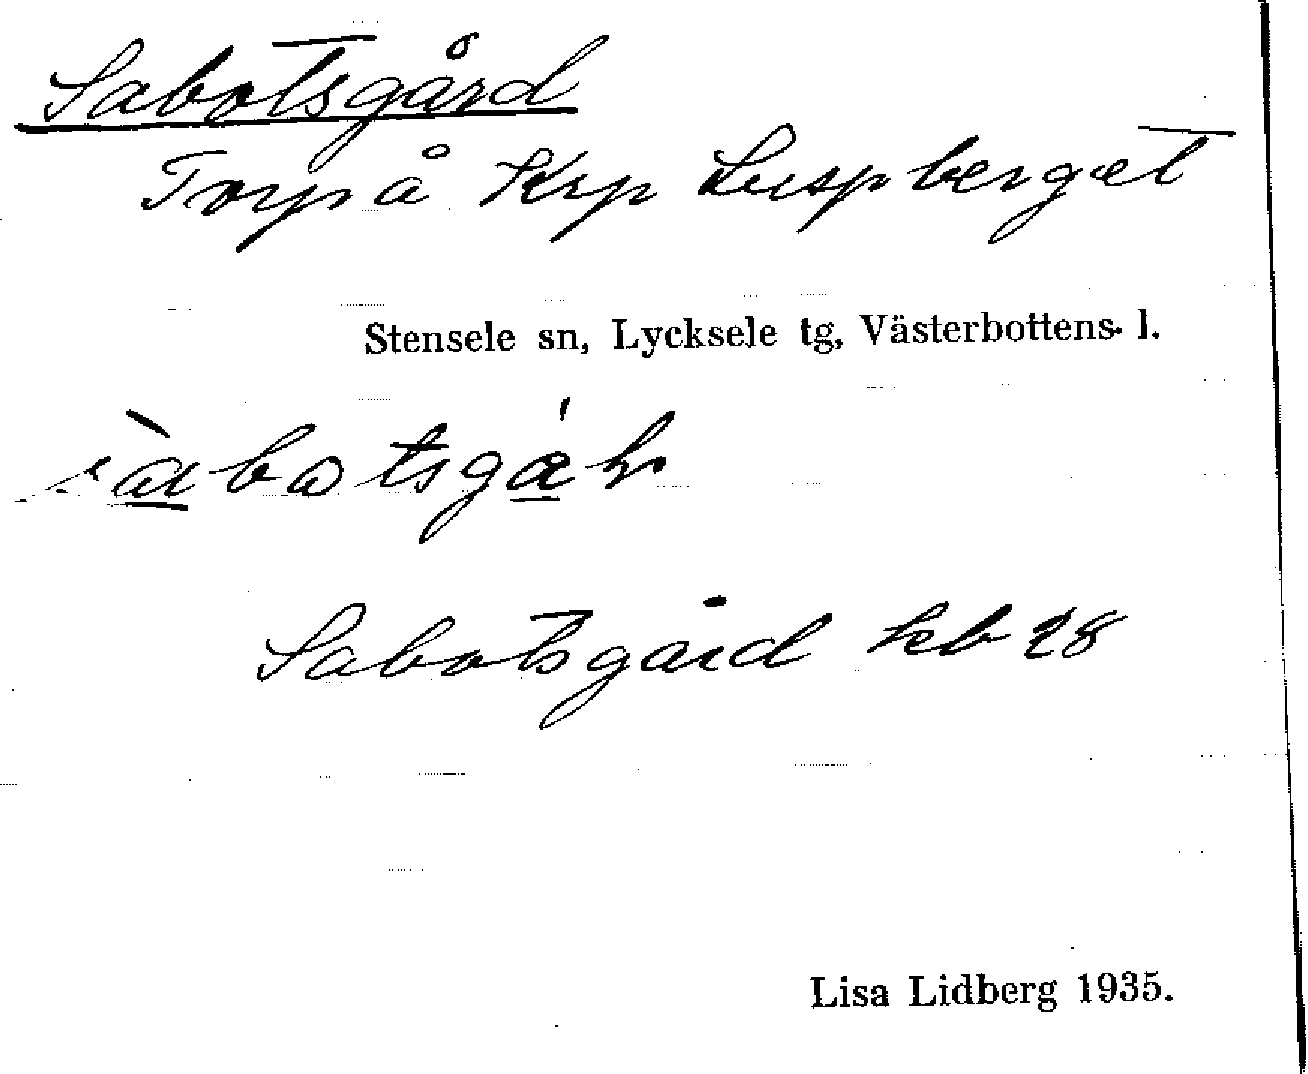 Sabotsgård
Torp å Krp Luspberget
Stensele sn, Lycksele tg, Västerbottens l.
sàbotsgáɽ
Sabotsgård hcb 28
Lisa Lidberg 1935.